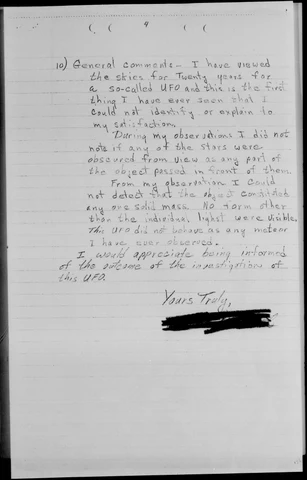 9
10) General comments - I have viewed
the skies for Twenty years for
a so-called UFO and this is the first
thing I have ever seen that I
could not identify or explain to
my satisfaction.
During my observations I did not
note if any of the stars were
obscured from view as any part of
the object passed in front of them.
From my observation I could
not detect that the constituted
any one solid mass. No form other
than the individual lights were visible.
This UFO did not behave as any meteor
I have ever observed.
I would appreciate being informed
of the outcome of the investigations of
this UFO.
Yours Truly,